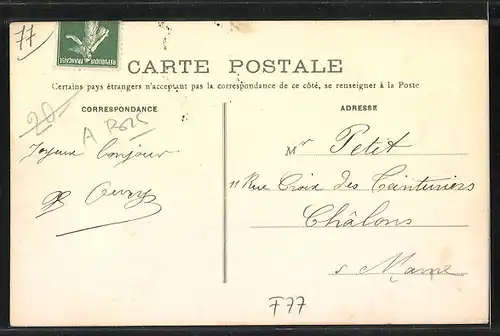 77
REPUBLIQUE FRANÇAISE
CARTE POSTALE
Certains pays étrangers n'acceptant pas la correspondance de ce côté, se renseigner à la Poste
CORRESPONDANCE
20-
Joyeux bonjour
ADRESSE
Mr Petit
11 Rue Croix des Teinturiers
Châlons
s Marne
F77